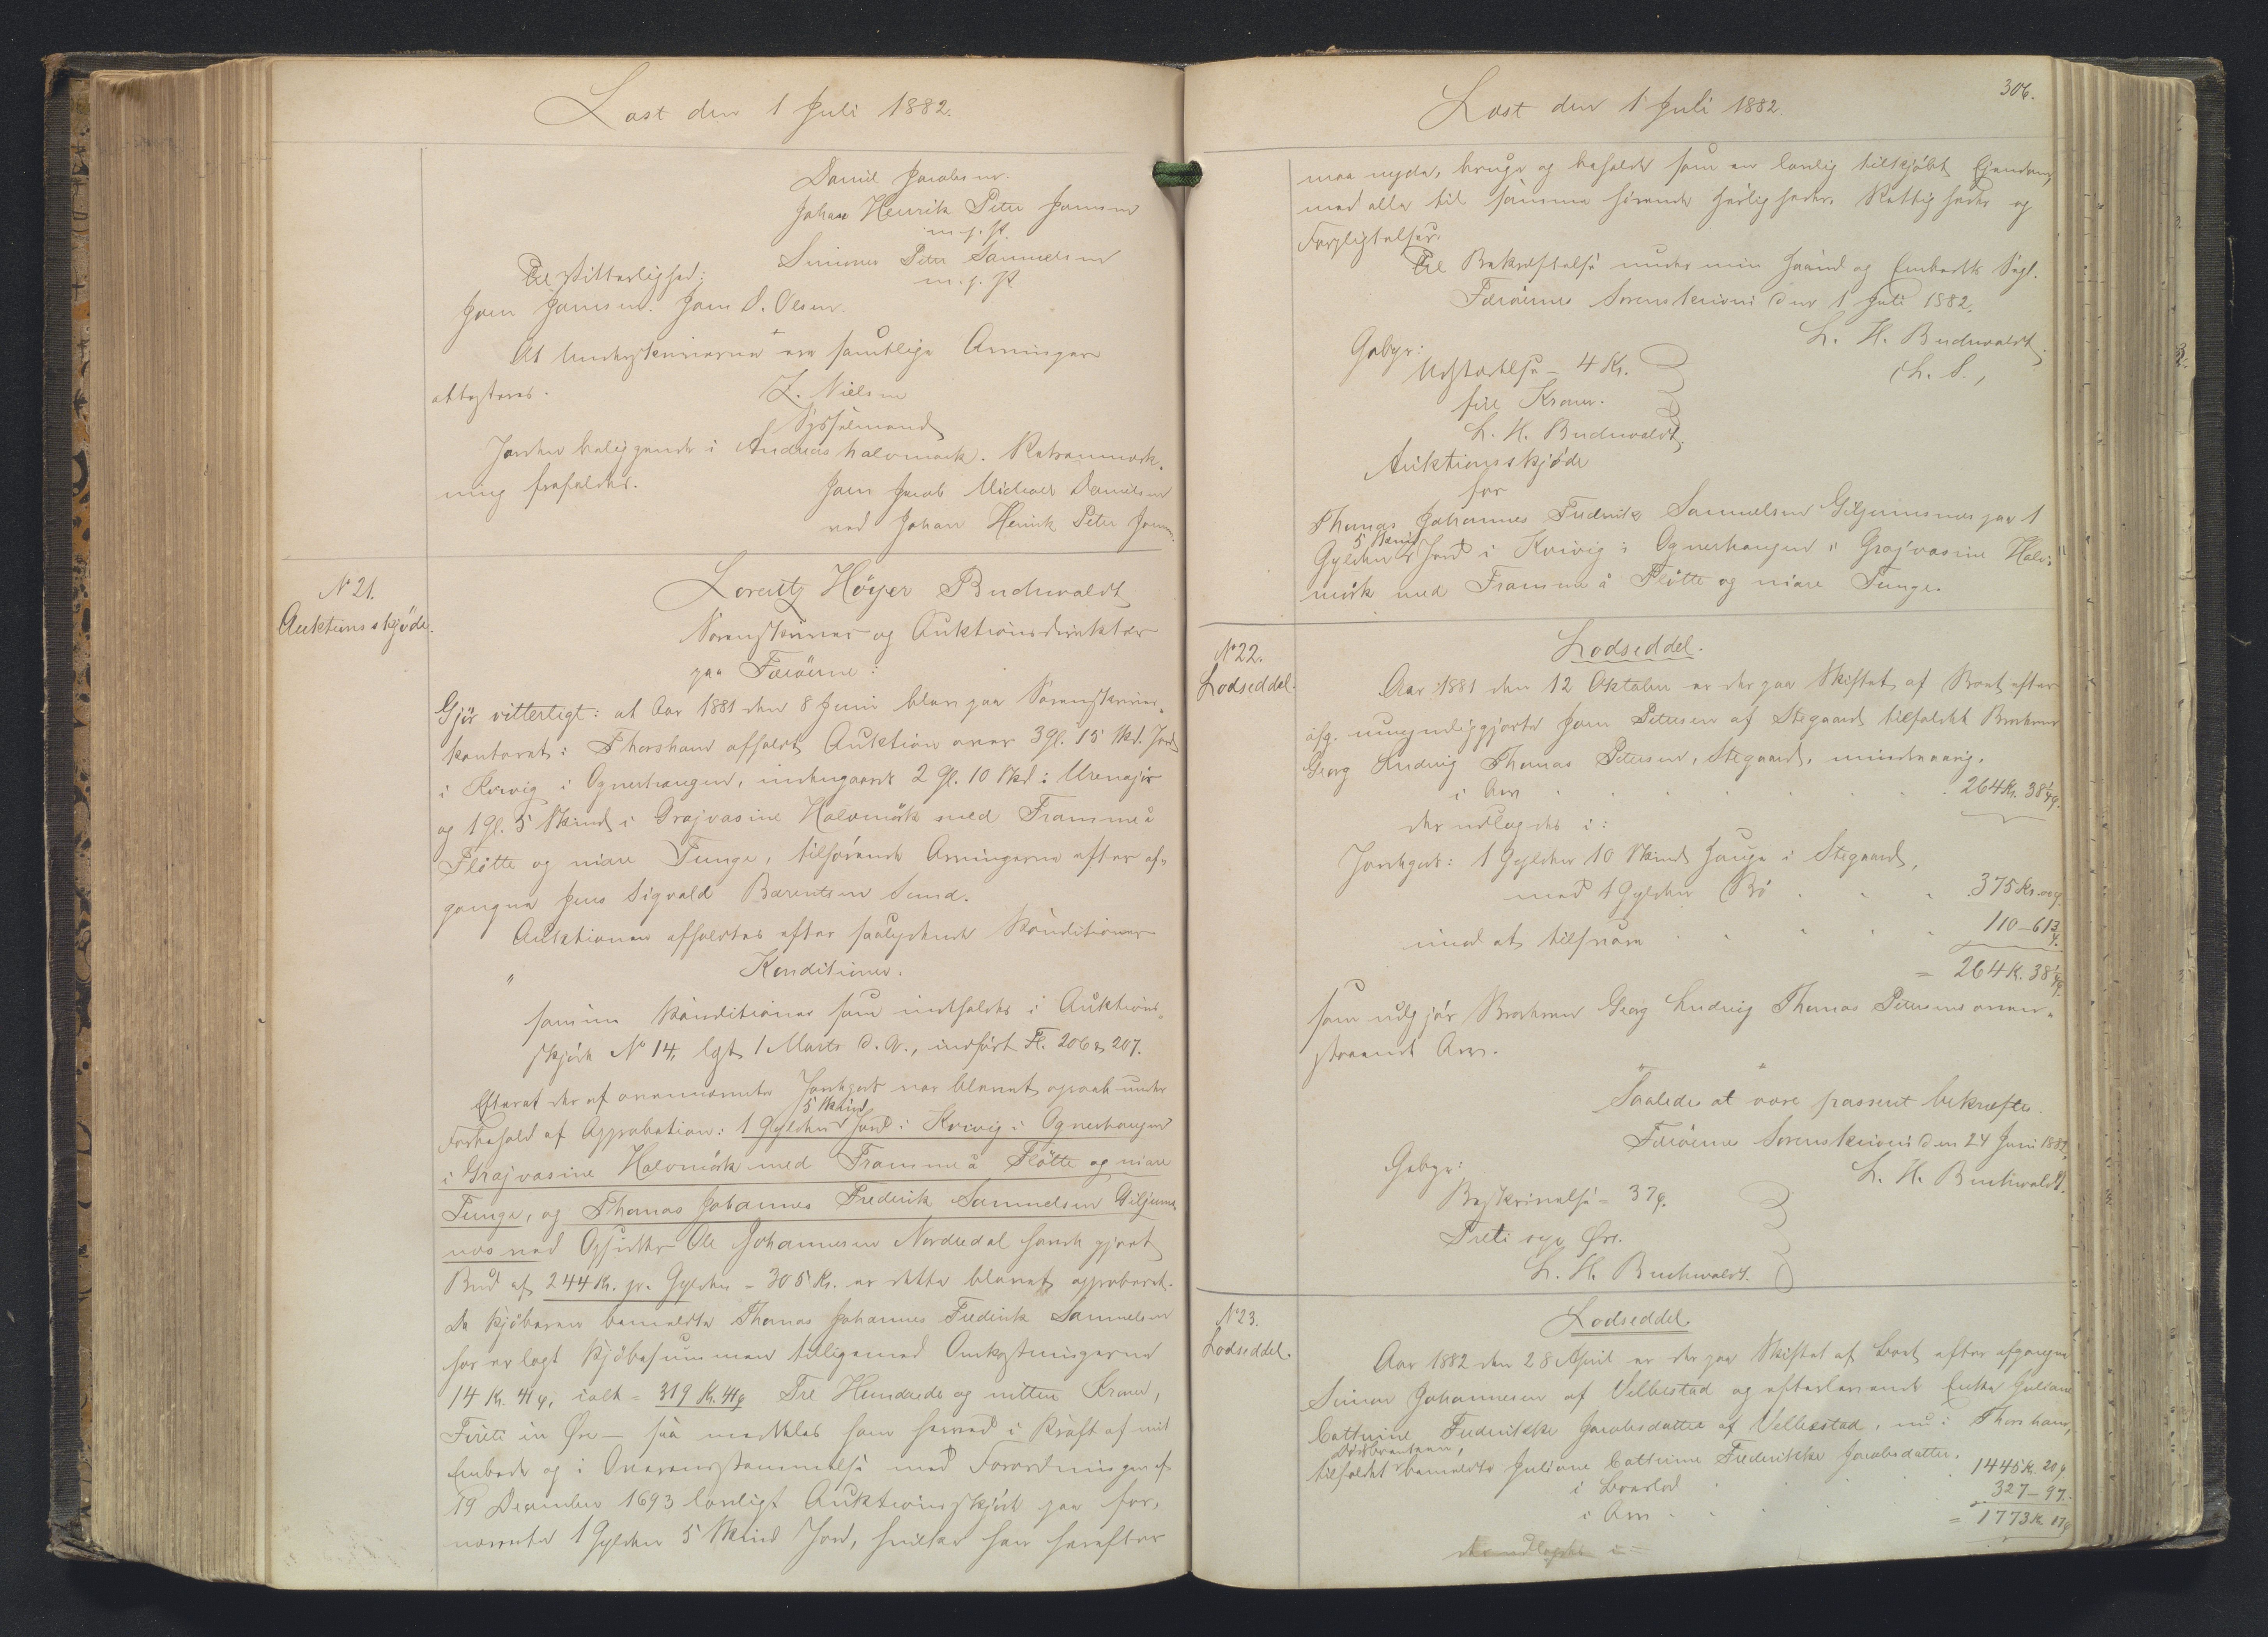 Læst den 1 Juli 1882.
Daniel Jacobsen.
Johan Henrik Peter Joensen
m. f. P.
Simonus Peter Samuelsen
m. f. P.
Til Vitterlighed:
Joen Joensen. Joen S. Olsen.
At Underskriverne ere samtlige Arvinger
attesteres.
Z. Nielsen
Sysselmand
Jorden beliggende i Andreas halvmark. Retsanmærk-
ning frafaldes.
Joen Jacob Michael Danielsen
ved Johan Henrik Peter Joensen.
N° 21.
Auktionsskjøde.
Lorentz Høyer Buchwaldt
Sorenskriver og Auktionsdirektør
paa Færøerne:
Gjør vitterligt: at Aar 1881 den 8 Juni blev paa Sorenskriver-
kontoret i Thorshavn afholdt Auktion over 3 Gl. 15 Skd. Jord
i Kvivig i Ognerhaugen, indengaards 2 Gl. 10 Skd. i Urenajir
og 1 Gl. 5 Skind i Grajvasine Halvmörk med Framme å
Fløtte og niare Tunge, tilhørende Arvingerne efter af-
gangne Jens Sigvald Barentsen Sund.
Auktionen afholdtes efter saalydende Konditioner
" Konditioner.
samme Konditioner som indholdes i Auktions-
skjøde N° 14, lgt. 1 Marts d. A., indført Fl. 206 & 207.
Efterat der af ovennævnte Jordegods var blevet opraabt under
Forbehold af Approbation: 1 Gylden 5 Skind Jord i Kvivig i Ognerhaugen
i Grajvasine Halvmörk med Framme å Fløtte og niare
Tunge, og Thomas Johannes Frederik Samuelsen Giljums-
nes ved Opsidder Ole Johannesen Nordredal havde gjort
Bud af 244 Kr. pr. Gylden = 305 Kr. er dette blevet approberet.
Da Kjøberen bemeldte Thomas Johannes Frederik Samuelsen
har erlagt Kjøbesummen tilligemed Omkostningerne
14 Kr. 41 ø, ialt = 319 Kr. 41 ø Tre Hundrede og nitten Kroner,
Firti en Øre — saa meddeles ham herved i Kraft af mit
Embede og i Overensstemmelse med Forordningen af
19 December 1693 lovligt Auktionsskjøde paa for-
nævnte 1 Gylden 5 Skind Jord, hvilke han herefter
Læst den 1 Juli 1882.
306.
maa nyde, bruge og beholde som en lovlig tilkjøbt Ejendom
med alle til samme hørende Herligheder, Rettigheder og
Forpligtelser.
Til Bekræftelse under min Haand og Embeds Segl.
Færøernes Sorenskriveri den 1 Juli 1882.
L. H. Buchwaldt.
(L. S.)
Gebyr:
Udstedelse = 4 Kr.
fire Kroner.
L. H. Buchwaldt.
Auktionsskjøde
for
Thomas Johannes Fredrik Samuelsen Giljumsnes paa 1
Gylden 5 Skind Jord i Kvivig i Ognerhaugen i Grajvasine Halv-
mörk med Framme å Fløtte og niare Tunge.
N° 22.
Lodseddel.
Lodseddel.
Aar 1881 den 12 Oktober er der paa Skiftet af Boet efter
afg. umyndiggjorte Joen Petersen af Stegaard tilfaldet Broderen
Georg Ludvig Thomas Petersen, Stegaard, mindreaarig,
i Arv . . . . . . 264 Kr. 38 1/4 ø.
der udlagdes i:
Jordegods: 1 Gylden 10 Skind Hauge i Stegaard,
med 1 Gylden Bø . . . 375 Kr. " ø.
imod at tilsvare . . . . . 110 – 61 3/4.
= 264 K. 38 1/4 ø.
som udgjør Broderen Georg Ludvig Thomas Petersens oven-
staaende Arv.
Saaledes at være passeret bekræftes.
Færøernes Sorenskriveri den 24 Juni 1882.
L. H. Buchwaldt.
Gebyr:
Beskrivelse = 37 ø.
Treti syv Øre.
L. H. Buchwaldt.
N° 23.
Lodseddel.
Lodseddel.
Aar 1882 den 28 April er der paa Skiftet af Boet efter afgangne
Simon Johannesen af Velbestad og efterlevende Enke Juliane
Cathrine Fredrikke Jacobsdatter af Velbestad, nu i Thorshavn,
tilfaldet bemeldte Juliane Cathrine Fredrikke Jacobsdatter,
i Boeslod . . . 1445 K. 20 ø
i Arv . . . 327 – 97.
= 1773 K. 17 ø
der udlagdes i: